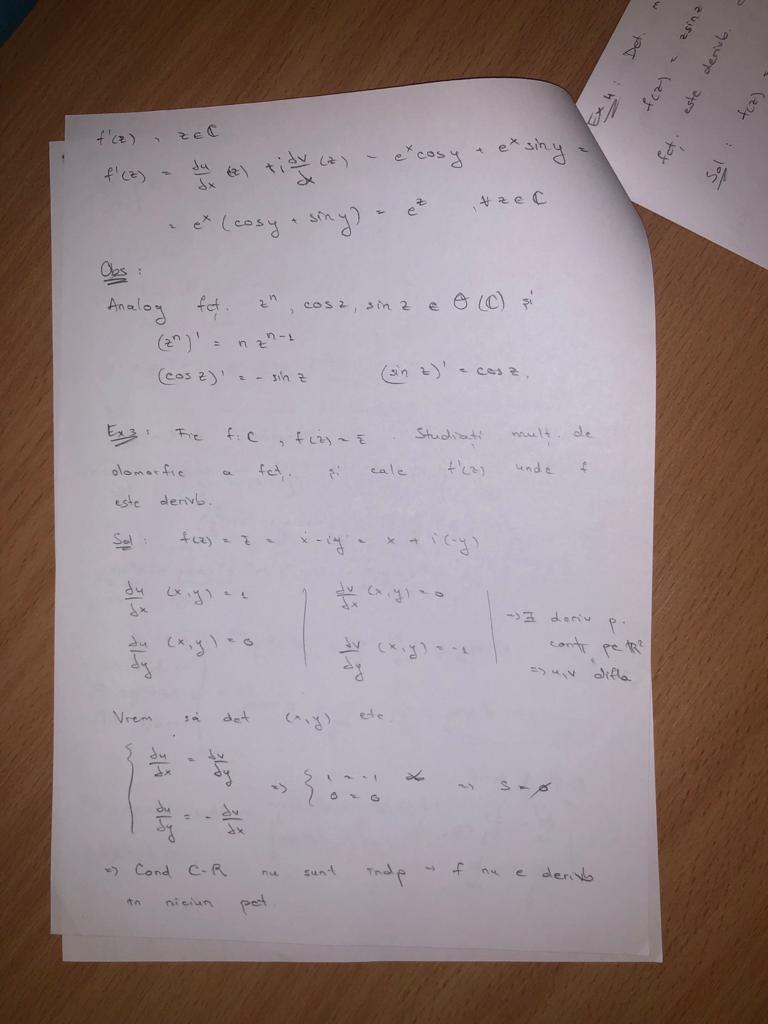 f'(z) , z∈ℂ
f'(z) = du/dx (z) + i dv/dx (z) = e^x cos y + e^x sin y =
= e^x (cos y + sin y) = e^z , ∀ z ∈ ℂ
Obs :
Analog fct. z^n , cos z, sin z ∈ Θ (ℂ) și
(z^n)' = n z^{n-1}
(cos z)' = - sin z (sin z)' = cos z.
Ex 3 : Fie f: ℂ , f(z) = z̄ . Studiați mulț. de
olomorfie a fcț. și calc f'(z) unde f
este derivb.
Sol : f(z) = z̄ = x - iy = x + i(-y)
du/dx (x,y) = 1 dv/dx (x,y) = 0
du/dy (x,y) = 0 dv/dy (x,y) = -1
=> ∃ deriv p.
cont pe ℝ²
=> u,v difb
Vrem să det (x,y) etc.
{ du/dx = dv/dy => { 1 = -1 => S = ∅
du/dy = - dv/dx 0 = 0
=> Cond C-R nu sunt indp → f nu e derivb
în niciun pct.
Ex 4 : Det.
f(z) = z sin z
fcț. este derivb.
Sol : f(z) =